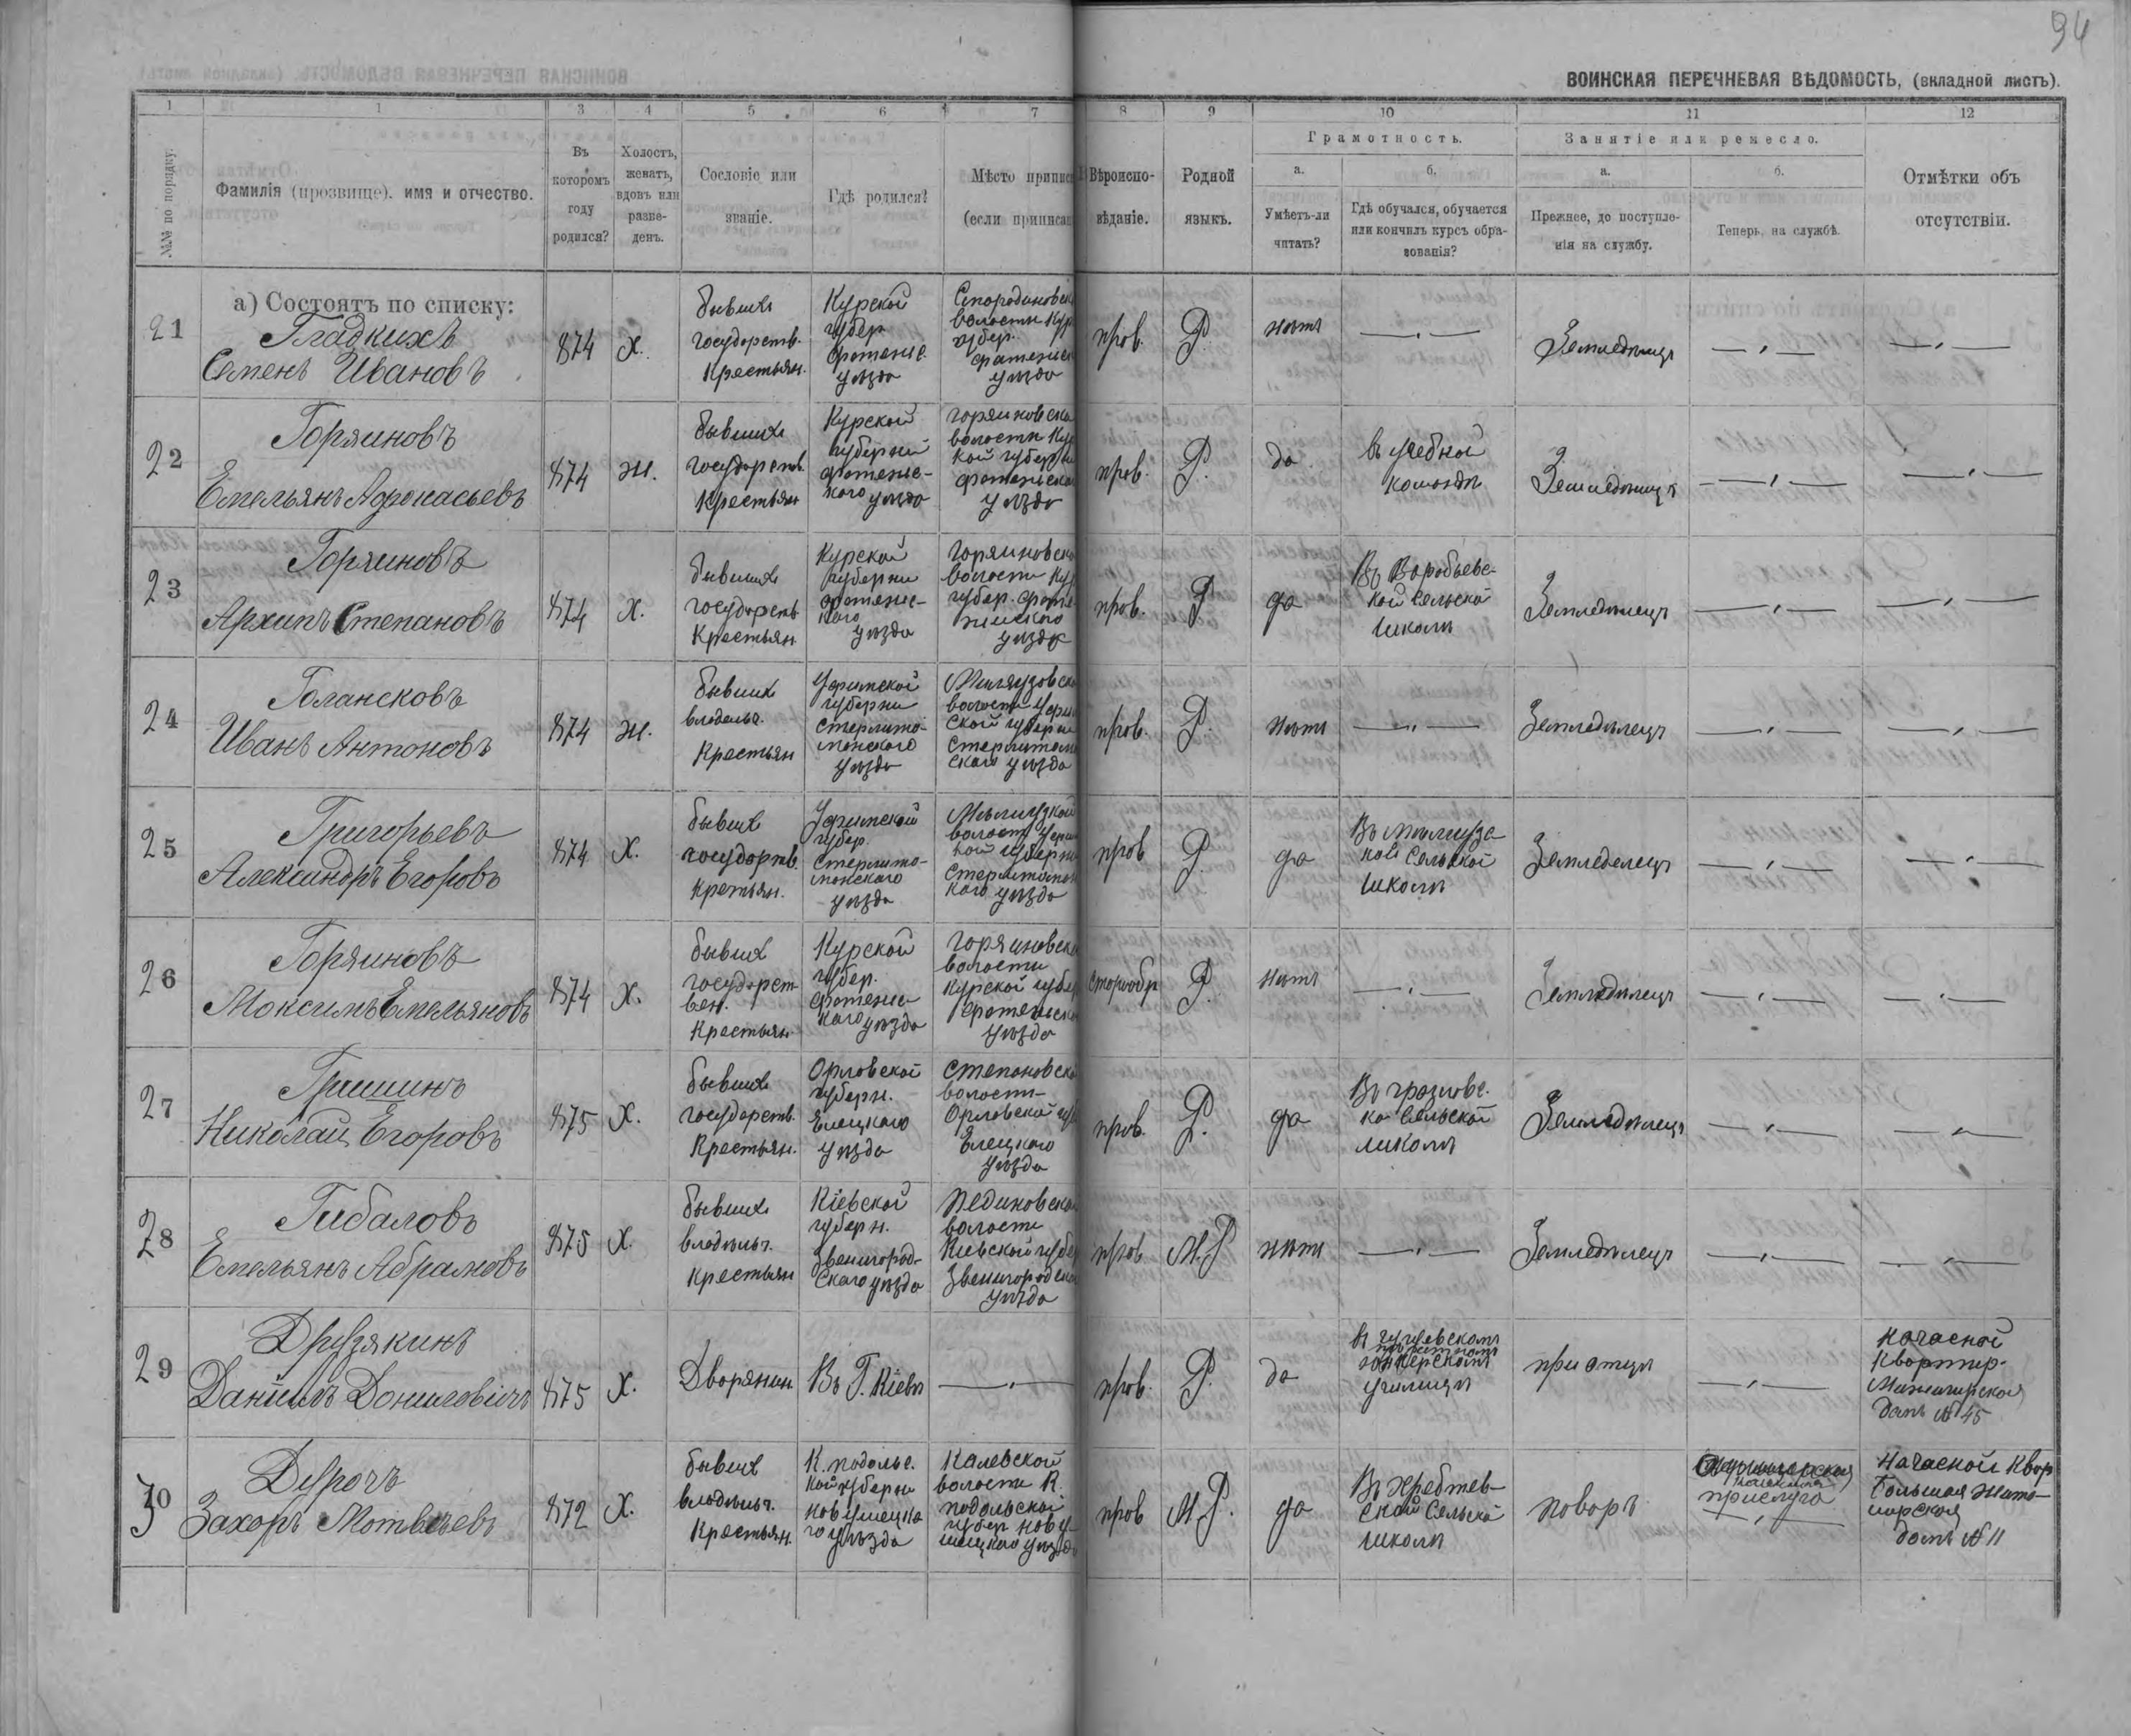 94
ВОИНСКАЯ ПЕРЕЧНЕВАЯ ВѢДОМОСТЬ, (вкладной листъ).
1 1 3 4 5 6 7 8 9 10 11 12
№№ по порядку.
Фамилія (прозвище), имя и отчество.
Въ которомъ году родился?
Холостъ, женатъ, вдовъ или разве-денъ.
Сословіе или званіе.
Гдѣ родился?
Мѣсто припис
(если приписа
Вѣроиспо-вѣданіе.
Родной языкъ.
Грамотность.
а.
Умѣетъ-ли читать?
б.
Гдѣ обучался, обучается или кончилъ курсъ обра-зованія?
Занятіе или ремесло.
а.
Прежнее, до поступле-нія на службу.
б.
Теперь, на службѣ.
Отмѣтки объ отсутствіи.
а) Состоятъ по списку:
21
Гладкихъ
Семенъ Ивановъ
874
Х.
бывших
государств.
Крестьян.
Курской
губер.
фатежс.
уѣзда
волости Кур
губер.
уѣзда
пров.
Р.
нѣтъ
— „ —
Земледѣлецъ
— „ —
— „ —
22
Горяиновъ
Емельянъ Афонасьевъ
874
Ж.
бывших
государств.
Крестьян
Курской
губерніи
фатежс-
каго уѣзда
горяиновска
волости Кур
кой губерни
фатежска
уѣзда
пров.
Р.
да
въ учебной
командѣ
Земледѣлецъ
— „ —
— „ —
23
Горяиновъ
Архипъ Степановъ
874
Х.
бывших
государств
Крестьян
Курской
губерни
фатежс-
каго
уѣзда
Горяиновска
волости Кур
губер. фате
жскаго
уѣзда
пров.
Р.
да
Въ Воробьевс-
кой Сельско
школѣ
Земледѣлецъ
— „ —
— „ —
24
Голансковъ
Иванъ Антоновъ
874
Ж.
бывших
владельч.
Крестьян
Уфимской
губерни
стерлита-
макского
уѣзда
волости Уфим
ской губерни
Стерлитамак
скаго уѣзда
пров.
Р.
нѣтъ
— „ —
Земледѣлецъ
— „ —
— „ —
25
Григорьевъ
Александръ Егоровъ
874
Х.
бывших
государств.
Крестьян.
Уфимской
губер.
Стерлита-
макскаго
уѣзда
волости Уфимс
кой губерни
Стерлитамакс
каго уѣзда
пров
Р.
да
кой Сельской
школѣ
Земледелецъ
— „ —
— „ —
26
Горяиновъ
Моксимъ Емельяновъ
874
Х.
бывших
государст
вен.
Крестьян.
Курской
губер.
фатежс
каго уѣзда
Горяиновска
волости
Курской губер
фатежска
уѣзда
старообр
Р.
нѣтъ
— „ —
Земледѣлецъ
— „ —
— „ —
27
Гришинъ
Николай Егоровъ
875
Х.
бывших
государств.
Крестьян.
Орловской
губерн.
Елецкаго
уѣзда
Степановска
волости
Орловской губ
Елецкаго
уѣзда
пров.
Р.
да
ко Сельской
школѣ
Земледѣлецъ
— „ —
— „ —
28
Гибаловъ
Емельянъ Абрамовъ
875
Х.
бывших
владѣльч.
Крестьян
Кіевской
губерн.
Звенигород-
скаго уѣзда
Пединовская
волости
Кіевской губер
Звенигородска
уѣзда
пров
М.Р.
нѣтъ
— „ —
Земледѣлецъ
— „ —
— „ —
29
Друзякинъ
Даніилъ Даниловичъ
875
Х.
Дворянин
Въ Г. Кіевѣ
— „ —
пров.
Р.
да
въ Чугуевскомъ
пѣхотномъ
юнкерскомъ
училищѣ
при отцѣ
— „ —
на частной
Квартир.
Межигирской
домъ № 45
30
Дурочъ
Захаръ Мотвѣевъ
872
Х.
бывших
владѣльч.
Крестьян.
К. подольс.
кой губерни
Нов ушецка
го уѣзда
Калевской
волости К.
подольской
губер нов у-
шецкаго уѣзда
пров
М.Р.
да
Въ Хребтев-
ской Сельско
школѣ
поваръ
прислуга
— „ —
На частной Квар
Большая Жито-
мирской
домъ № 11